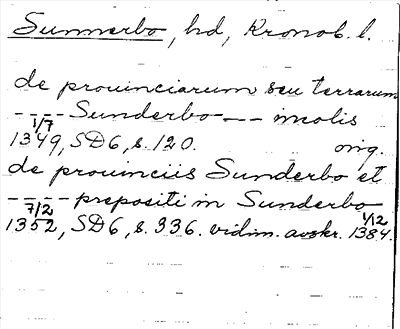 Sunnerbo, hd, Kronob. l.
de prouinciarum seu terrarum
---- Sunderbo --- incolis
1/7
1349, SD6, s. 120. orig.
de prouinciis Sunderbo et
---- prepositi in Sunderbo
7/2 1/12
1352, SD6, s. 336. vidim. avskr. 1384.